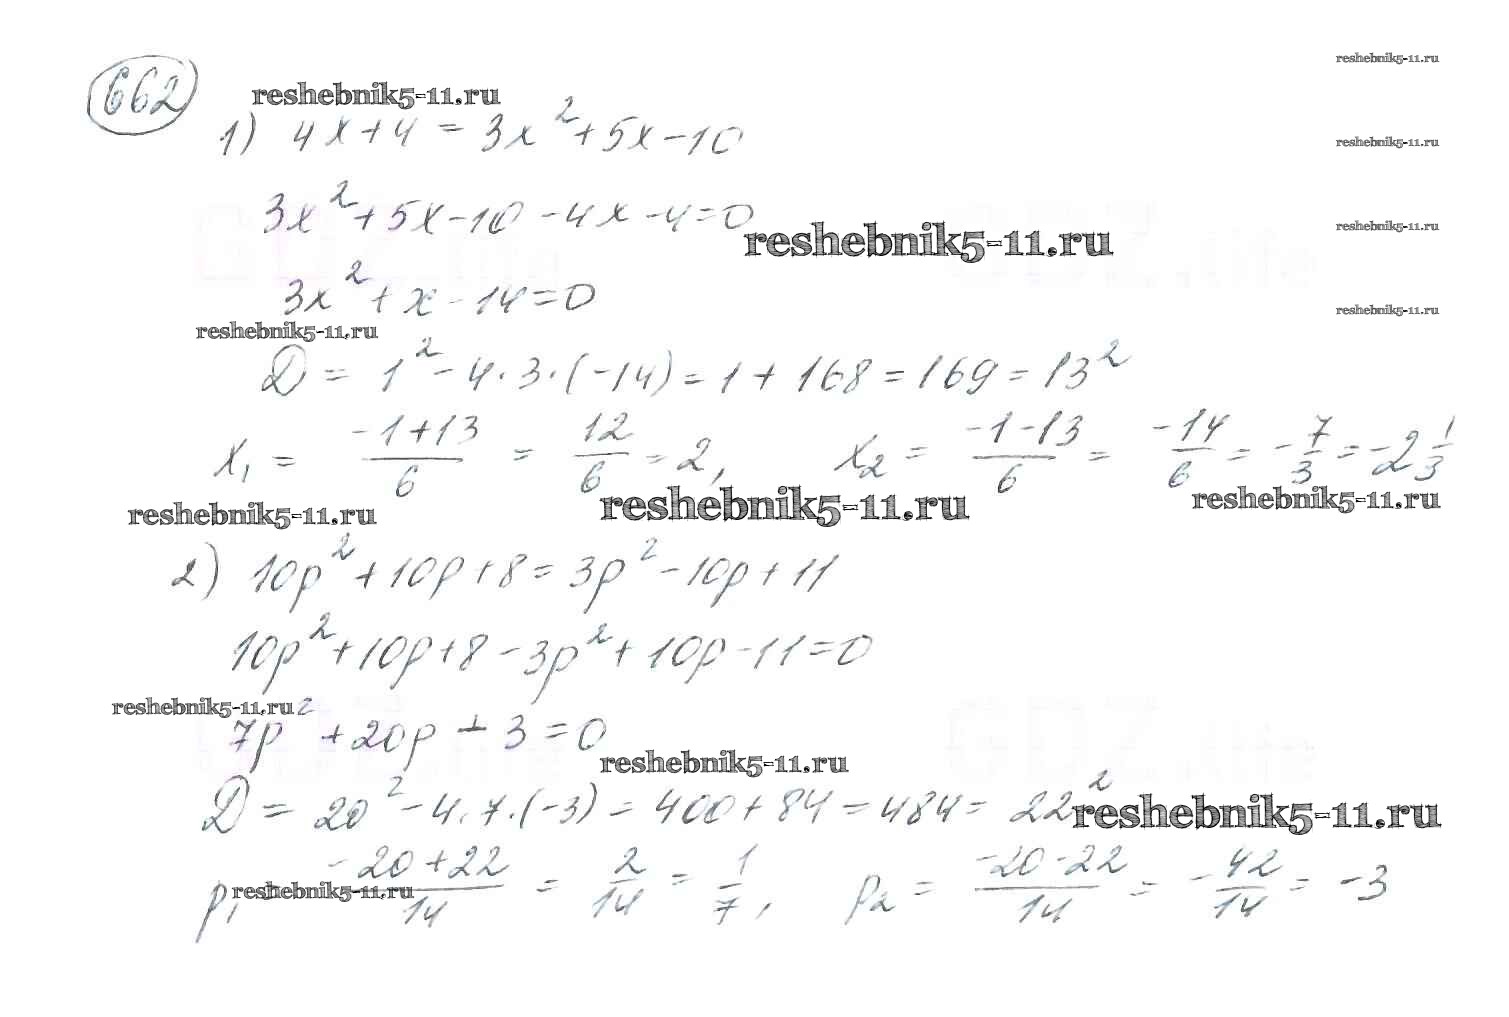 reshebnik5-11.ru
662
reshebnik5-11.ru
1) 4x+4 = 3x²+5x-10
reshebnik5-11.ru
3x²+5x-10-4x-4=0
reshebnik5-11.ru
reshebnik5-11.ru
3x²+x-14=0
reshebnik5-11.ru
reshebnik5-11.ru
D = 1²-4·3·(-14)=1+168=169=13²
x₁ = (-1+13)/6 = 12/6 = 2, x₂ = (-1-13)/6 = -14/6 = -7/3 = -2 1/3
reshebnik5-11.ru
reshebnik5-11.ru
reshebnik5-11.ru
2) 10p²+10p+8=3p²-10p+11
10p²+10p+8-3p²+10p-11=0
reshebnik5-11.ru
7p²+20p-3=0
reshebnik5-11.ru
D = 20²-4·7·(-3)=400+84=484=22²
reshebnik5-11.ru
p₁ = (-20+22)/14 = 2/14 = 1/7, p₂ = (-20-22)/14 = -42/14 = -3
reshebnik5-11.ru